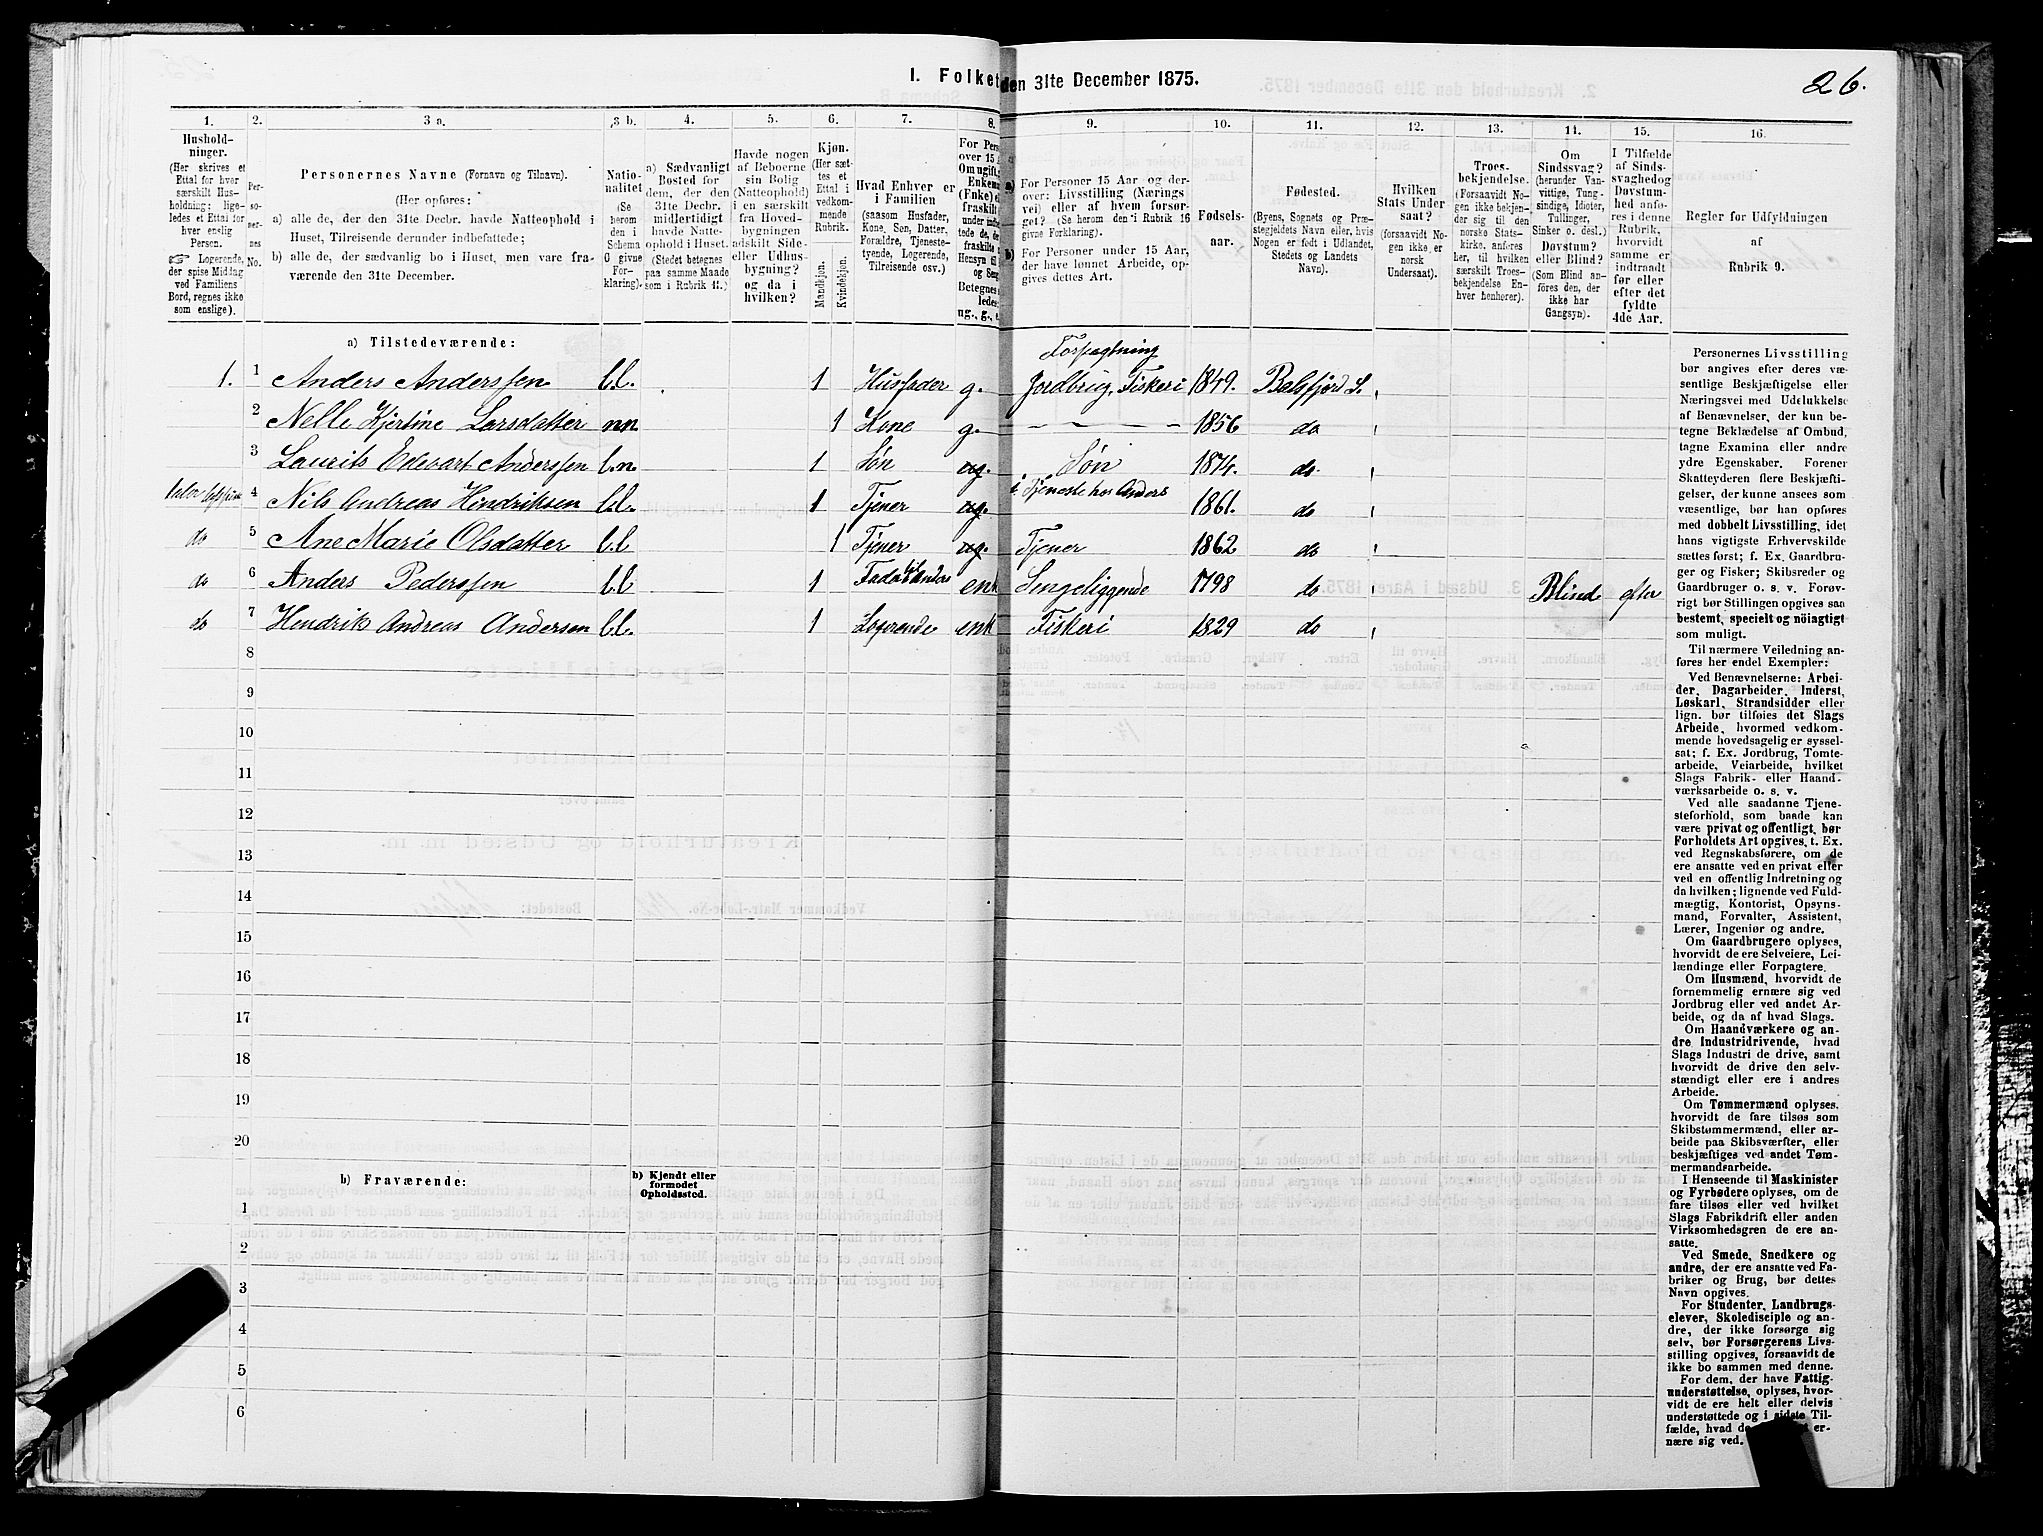 I. Folket
den 31te December 1875.
26.
1.
Hushold-
ninger.
(Her skrives et
Ettal for hver
særskilt Hus-
holdning; lige-
ledes et Ettal for
hver enslig
Person.
☞ Logerende,
der spise Middag
ved Familiens
Bord, regnes ikke
som enslige).
2.
Per-
so-
ner-
nes
No.
3 a.
Personernes Navne (Fornavn og Tilnavn).
(Her opføres:
a) alle de, der den 31te Decbr. havde Natteophold i
Huset, Tilreisende derunder indbefattede;
b) alle de, der sædvanlig bo i Huset, men vare fra-
værende den 31te December.
3 b.
Natio-
nalitet
(Se
herom
den i
Schema
G givne
For-
klaring).
4.
a) Sædvanligt
Bosted for
dem, der den
31te Decbr.
midlertidigt
havde Natte-
ophold i Huset.
(Stedet betegnes
paa samme Maade
som i Rubrik 11.)
5.
Havde nogen
af Beboerne
sin Bolig
(Natteophold)
i en særskilt
fra Hoved-
bygningen
adskilt Side-
eller Udhus-
bygning?
og da i
hvilken?
6.
Kjøn.
(Her sæt-
tes et
Ettal i
vedkom-
mende
Rubrik.
Mandkjøn.
Kvindekjøn.
7.
Hvad Enhver er
i Familien
(saasom Husfader,
Kone, Søn, Datter,
Forældre, Tjeneste-
tyende, Logerende,
Tilreisende osv.)
8.
For Pers
over 15 A
Om ugift,
Enkema
(Fnke) el
fraskilt
under indt
tede de, de
fraskilte
Hensyn til
og Seng
Betegnes
ledes
ug., g., e
9.
a) For Personer 15 Aar og der-
over: Livsstilling (Nærings-
vei) eller af hvem forsør-
get? (Se herom den i Rubrik 16
givne Forklaring).
b) For Personer under 15 Aar,
der have lønnet Arbeide, op-
gives dettes Art.
10.
Fødsels-
aar.
11.
Fødested.
(Byens, Sognets og Præ-
stegjeldets Navn eller, hvis
Nogen er født i Udlandet,
Stedets og Landets
Navn).
12.
Hvilken
Stats Under
saat?
(forsaavidt No-
gen ikke er
norsk
Undersaat).
13.
Troes-
bekjendelse.
(Forsaavidt No-
gen ikke bekjen-
der sig til den
norske Stats-
kirke, anføres
her, til hvilken
særskilt Troes-
bekjendelse En-
hver henhører).
14.
Om
Sindssvag?
(herunder Van-
vittige, Tung-
sindige, Idioter,
Tullinger,
Sinker o. desl.)
Døvstum?
eller Blind?
(Som Blind an-
føres den, der
ikke har
Gangsyn).
15.
I Tilfælde
af Sinds-
svaghed og
Døvstum-
hed anfø-
res i denne
Rubrik,
hvorvidt
samme er
indtraadt
før eller
efter det
fyldte
4de Aar.
16.
Regler for Udfyldningen
af
Rubrik 9.
a) Tilstedeværende:
1. 1 Anders Anderssen l.l. 1 Husfader g. Forpagtning Jordbrug, Fiskeri 1849. Balsfjord S.
2 Nelle Kjertine Larsdatter nn. 1 Kone g. — — — 1856 do
3 Laurits Edevart Anderssen l.n. 1 Søn ug. Søn 1874. do.
4 Nils Andreas Hindriksen l.l. 1 Tjener ug. i Tjeneste hos Anders 1861. do
do 5 Ane Marie Olsdatter l.l 1 Tjener ug. Tjener 1862 do
do 6 Anders Pederssen l.l 1 Fader til Anders enk Sengeliggende 1798 do Blind efter
do 7 Hendrik Andreas Andersen l.l. 1 Logerende enk Fiskeri 1829 do
8
9
10
11
12
13
14
15
16
17
18
19
20
b) Fraværende:
b) Kjendt eller
formodet
Opholdssted.
1
2
3
4
5
6
Personernes Livsstilling
bør angives efter deres væ-
sentlige Beskjæftigelse eller
Næringsvei med Udelukkelse
af Benævnelser, der kun be-
tegne Beklædelse af Ombud,
tagne Examina eller andre
ydre Egenskaber. Forener
Skatteyderen flere Beskjæfti-
gelser, der kunne ansees som
væsentlige, bør han opføres
med dobbelt Livsstilling, idet
hans vigtigste Erhvervskilde
sættes først; f. Ex. Gaardbru-
ger og Fisker; Skibsreder og
Gaardbruger o. s. v. Forøv-
rigt bør Stillingen opgives saa
bestemt, specielt og nöiagtigt
som muligt.
Til nærmere Veiledning an-
føres her endel Exempler:
Ved Benævnelserne: Arbei-
der, Dagarbeider, Inderst,
Løskarl, Strandsidder eller
lign. bør tilføies det Slags
Arbeide, hvormed vedkom-
mende hovedsagelig er syssel-
sat; f. Ex. Jordbrug, Tomte-
arbeide, Veiarbeide, hvilket
Slags Fabrik- eller Haand-
værksarbeide o. s. v.
Ved alle saadanne Tjene-
steforhold, som baade kan
være privat og offentligt, bør
Forholdets Art opgives, t. Ex.
ved Regnskabsførere, om de
ere ansatte ved en privat eller
ved en offentlig Indretning og
da hvilken; lignende ved Fuld-
mægtig, Kontorist, Opsyns-
mand, Forvalter, Assistent,
Lærer, Ingeniør og andre.
Om Gaardbrugere oplyses,
hvorvidt de ere Selveiere, Lei-
lændinge eller Forpagtere.
Om Husmænd, hvorvidt de
fornemmelig ernære sig ved
Jordbrug eller ved andet Ar-
beide, og da af hvad Slags.
Om Haandværkere og an-
dre Industridrivende, hvad
Slags Industri de drive, samt
hvorvidt de drive den selv-
stændigt eller ere i andres
Arbeide.
Om Tømmermænd oplyses,
hvorvidt de fare tilsøs som
Skibstømmermænd, eller ar-
beide paa Skibsværfter, eller
beskjæftiges ved andet Tøm-
mermandsarbeide.
I Henseende til Maskinister
og Fyrbødere oplyses, om de
fare tilsøs eller ved hvilket
Slags Fabrikdrift eller anden
Virksomhedsgren de ere an-
satte.
Ved Smede, Snedkere og
andre, der ere ansatte ved Fa-
briker og Brug, bør dettes
Navn opgives.
For Studenter, Landbrugs-
elever, Skoledisciple og an-
dre, der ikke forsørge sig
selv, bør Forsørgerens Livs-
stilling opgives, forsaavidt de
ikke bo sammen med denne.
For dem, der have Fattig-
understøttelse, oplyses, hvor-
vidt de ere helt eller delvis
understøttede og i sidste Til-
fælde, hvad de er-
nære sig ved.